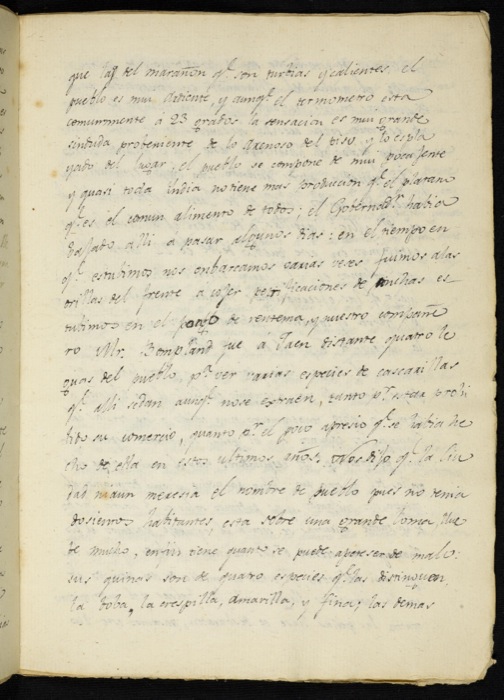 que las del marañon q.e son turbias y calientes. el
pueblo es mui ardiente, y aunq.e el termometro esta
comunmente à 23 grados la sensacion es mui grande
sin duda probeniente de lo arenoso del piso y lo espla
yado del lugar, el pueblo se compone de mui poca jente
y quasi toda India no tiene mas producion q.e el platano
q.e es el comun alimento de todos; el Gobernad.r habia
bajado alli a pasar algunos dias: en el tiempo en
q.e estubimos nos embarcamos varias veces fuimos a las
orillas del frente à cojer petrificaciones de conchas es
tubimos en el pongo de rentema, y nuestro compañe
ro Mr. Bompland fue a Jaen distante quatro le
guas del pueblo, p.r ver varias especies de cascarillas
q.e alli se dan aunq.e no se extraen, tanto p.r estar prohi
bido su comercio, quanto p.r el poco apresio q.e se habia he
cho de ella en estos ultimos años. Nos dijo q.e la Ciu
dad ni aun meresia el nombre de pueblo pues no tenia
dosientos habitantes esta sobre una grande loma, llue
be mucho, en fin tiene quanto se puede apeteser de malo:
sus quinas son de quatro especies q.e las distinguen,
la boba, la crespilla, amarilla, y fina; las demas